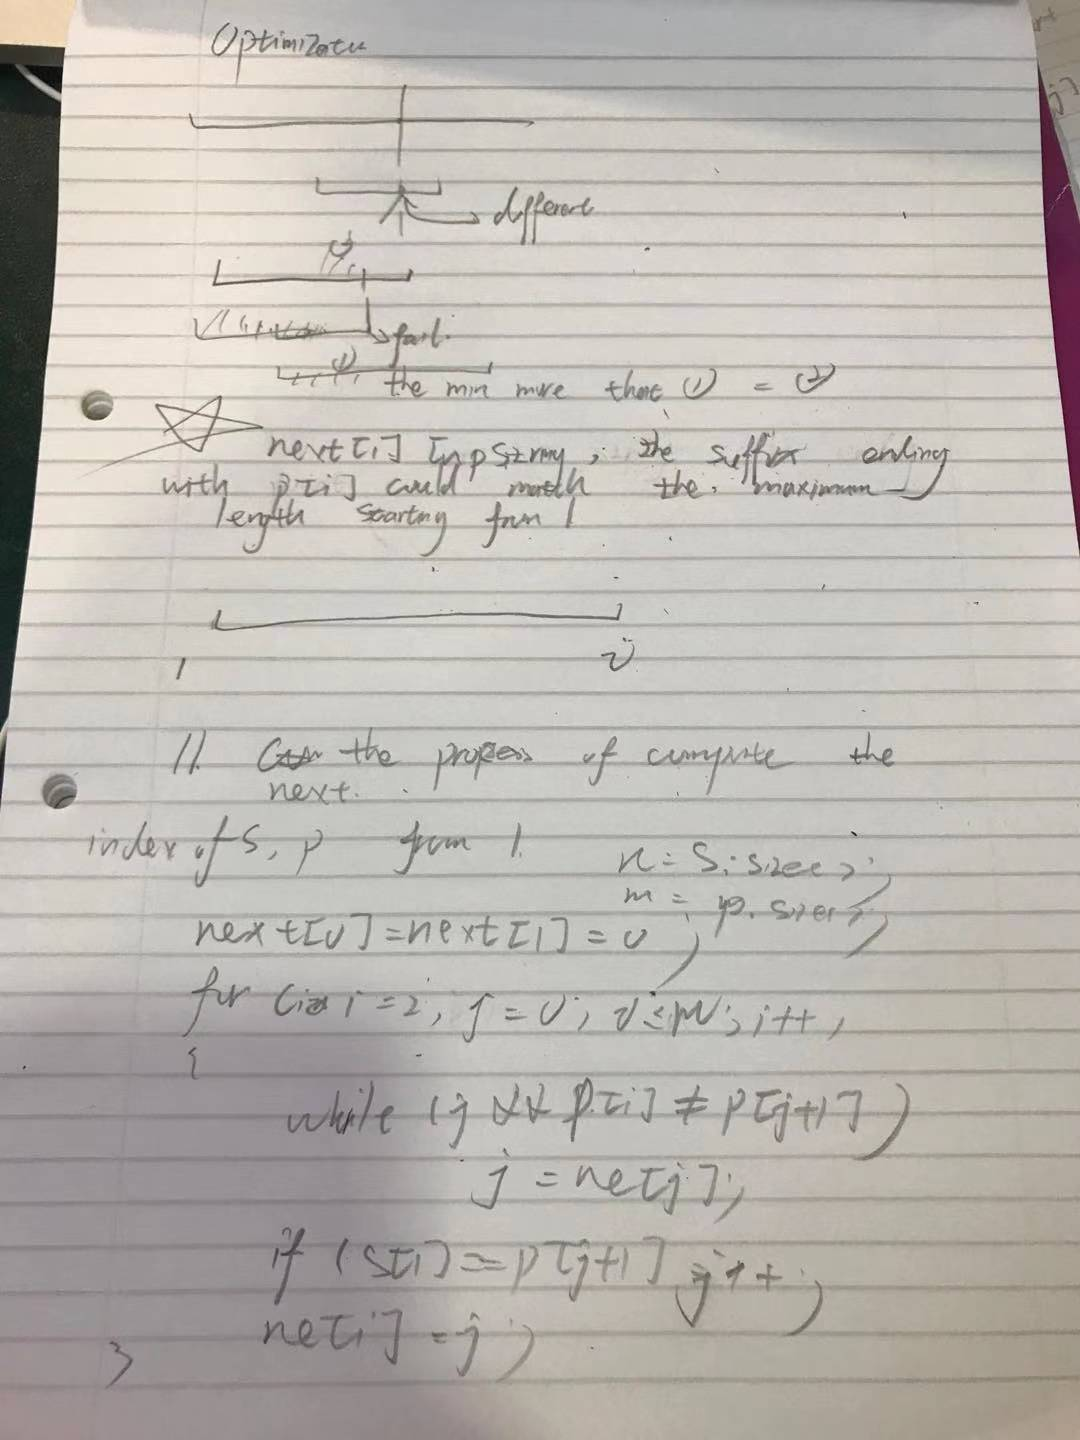 Optimizatn
different
②
fail.
①
the min move that ① = ②
next[i] In p string, the suffix ending
with p[i] could match the maximum
length starting from 1
1 i
// the process of compute the
next.
index of S, p from 1.
n = S.size();
m = p.size();
next[0]=next[1]=0;
for (int i=2, j=0; i≤m; i++)
{
while (j && p[i] ≠ p[j+1])
j = ne[j];
if (s[i]==p[j+1] j++;
ne[i]=j;
}